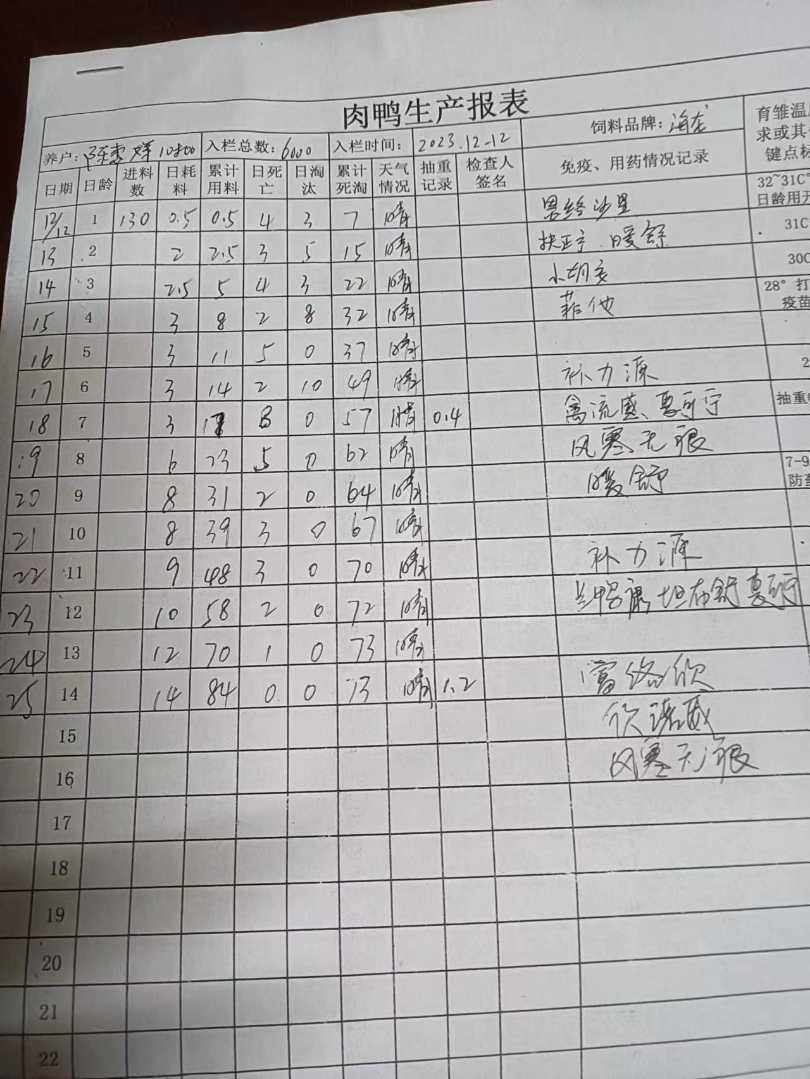 肉鸭生产报表
养户: 10800 入栏总数: 6000 入栏时间: 2023.12-12 饲料品牌: 海龙 育雏温
求或其
键点标
日期 日龄 进料数 日耗料 累计用料 日死亡 日淘汰 累计死淘 天气情况 抽重记录 检查人签名 免疫、用药情况记录
12/12 1 130 0.5 0.5 4 3 7 晴 恩给沙星 32~31C°
日龄用开
13 2 2 2.5 3 5 15 晴 扶正 暖舒 31C
14 3 2.5 5 4 3 22 晴 30C
15 4 3 8 2 8 32 晴 28° 打
疫苗
16 5 3 11 5 0 37 晴
17 6 3 14 2 10 49 晴 补力源 2
18 7 3 17 8 0 57 晴 0.4 禽流感、 抽重
19 8 6 23 5 0 62 晴 风寒无狠
20 9 8 31 2 0 64 晴 暖舒 7-9
防
21 10 8 39 3 0 67 晴
22 11 9 48 3 0 70 晴 补力源
23 12 10 58 2 0 72 晴
24 13 12 70 1 0 73 晴
25 14 14 84 0 0 73 晴 1.2
15 欣诺威
16 风寒无狠
17
18
19
20
21
22